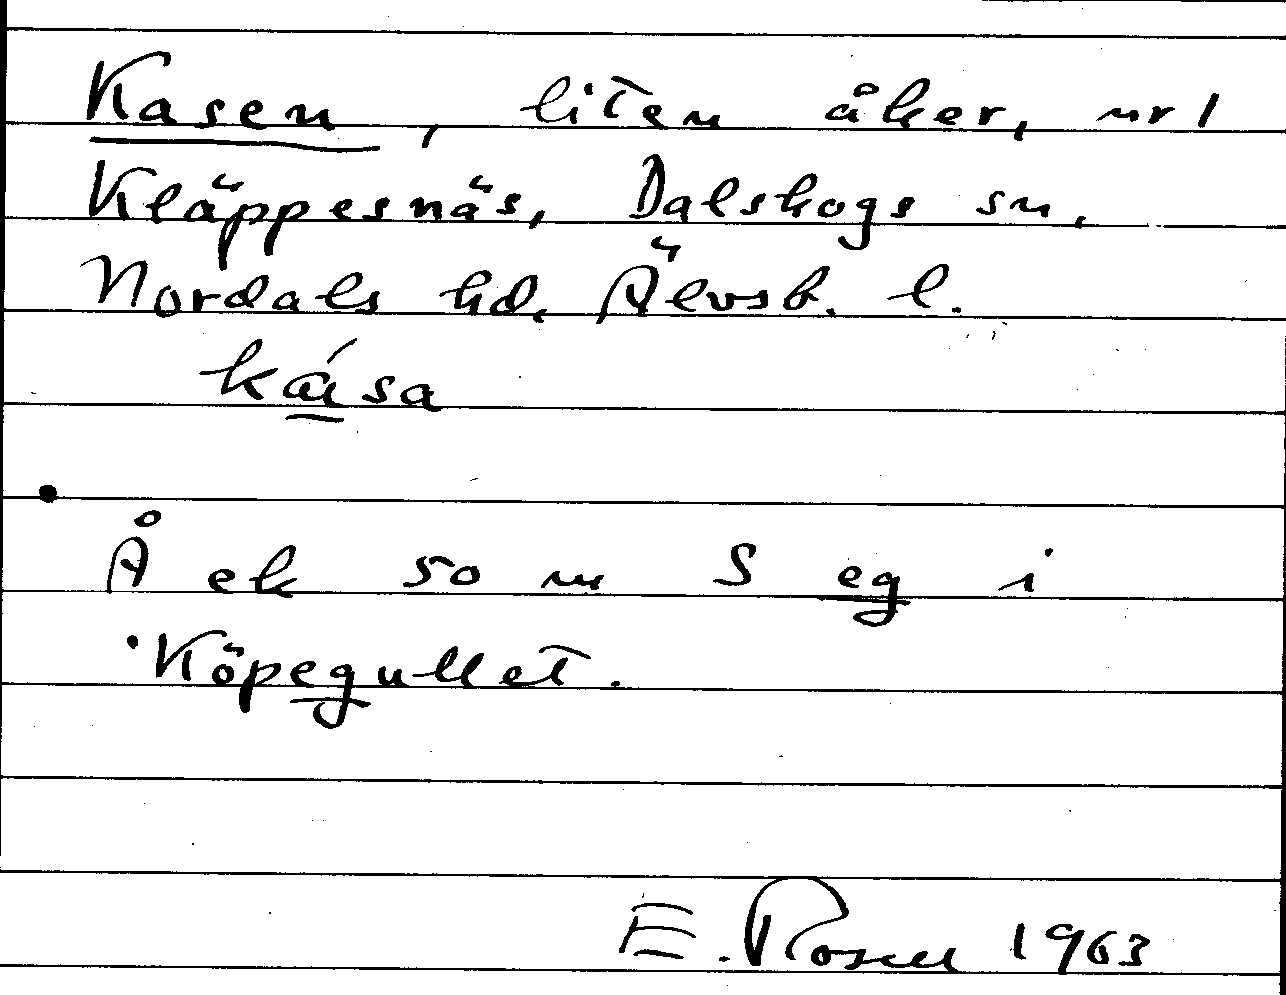 Kasen, liten åker, nr 1
Kläppesnäs, Dalskogs sn,
Nordals hd, Älvsb. l.
kása
Å ek som S eg i
Köpegullet.
E. Rosell 1963